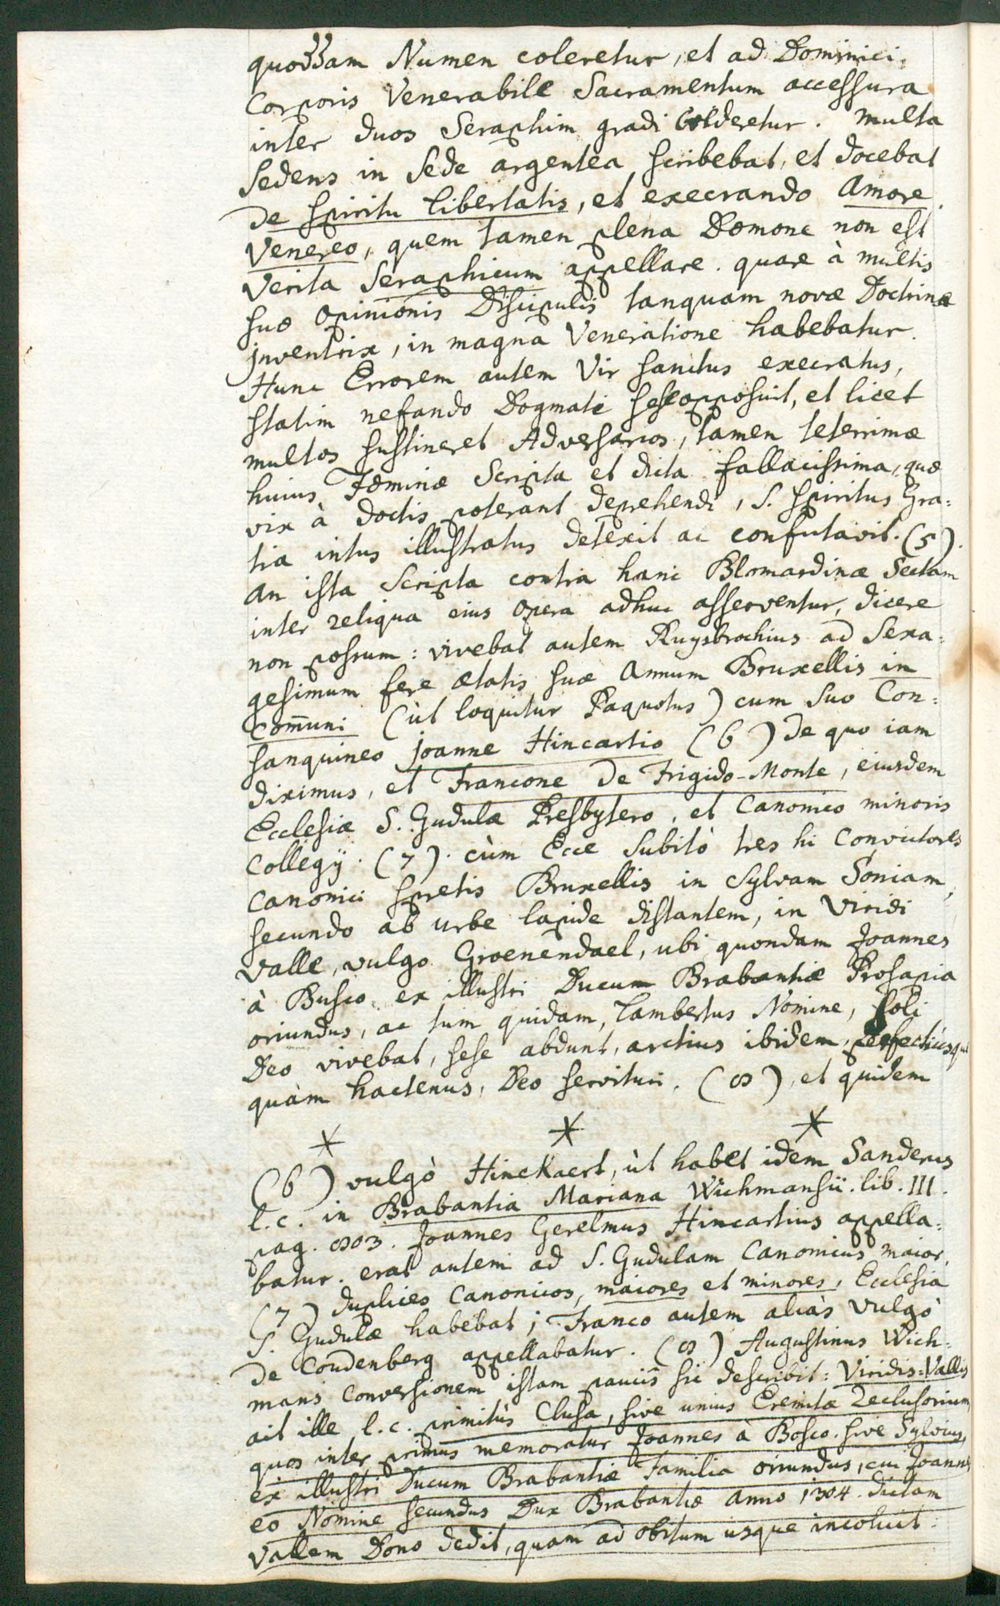 quoddam Numen coleretur, et ad Dominici
Corporis Venerabile Sacramentum accessura
inter duos Seraphim gradi Crederetur. multa
sedens in Sede argentea scribebat, et docebat
de spiritu libertatis, et execrando Amore
Venereo, quem tamen plena Dæmone non est
verita Seraphicum appellare. quare à multis
suæ opinionis Discipulis tanquam novæ Doctrinæ
inventrix, in magna Veneratione habebatur.
Hunc Errorem autem Vir sanctus execratus,
statim nefando Dogmati sese opposuit, et licet
multos sustineret Adversarios, tamen teterrimæ
huius Fœminæ Scripta et dicta fallacissima, quæ
vix à doctis poterant deprehendi, S. Spiritus Gra-
tia intus illustratus detexit ac confutavit. (5).
An ista Scripta contra hanc Blomardinæ Sectam
inter reliqua eius opera adhuc asserventur, dicere
non possum: vivebat autem Ruysbrochius ad Sexa-
gesimum fere ætatis suæ Annum Bruxellis in
com̄uni (ùt loquitur Paquotus) cum suo Con-
sanguineo Joanne Hincartio (6) de quo iam
diximus, et Francone De Frigido-Monte, eiusdem
Ecclesiæ S. Gudulæ Presbytero, et Canonico minoris
Collegÿ. (7). cùm Ecce subitò tres hi Convictores
Canonici spretis Bruxellis in Sylvam Soniam,
secundo ab urbe lapide distantem, in Viridi
Valle, vulgo Groenendael, ubi quondam Joannes
à Busco, ex illustri Ducum Brabantiæ Prosapia
oriundus, ac tum quidam, Lambertus Nomine, soli
Deo vivebat, sese abdunt, arctius ibidem, perfectiusque
quàm hactenus, Deo servituri. (8), et quidem
* * *
(6) vulgò Hinckaert, ùt habet idem Sanderus
l. c. in Brabantia Mariana Wichmansii. lib. III.
pag. 803. Joannes Gerelmus Hincartius appella-
batur. erat autem ad S. Gudulam Canonicus maior.
(7) duplices Canonicos, maiores et minores, Ecclesia
S. Gudulæ habebat; Franco autem aliàs vulgò
de Coudenberg appellabatur. (8) Augustinus Wich-
mans conversionem istam paucis sic describit: Viridis-Vallis
ait ille l. c. primitùs Clusa, sive unius Eremitæ Reclusorium,
quos inter primus memoratur Joannes à Bosco. sive Sylvius,
ex illustri Ducum Brabantiæ familia oriundus, cui Joannes
eo Nomine secundus Dux Brabantiæ Anno 1304. dictam
Vallem Dono dedit, quam ad obitum usque incoluit.